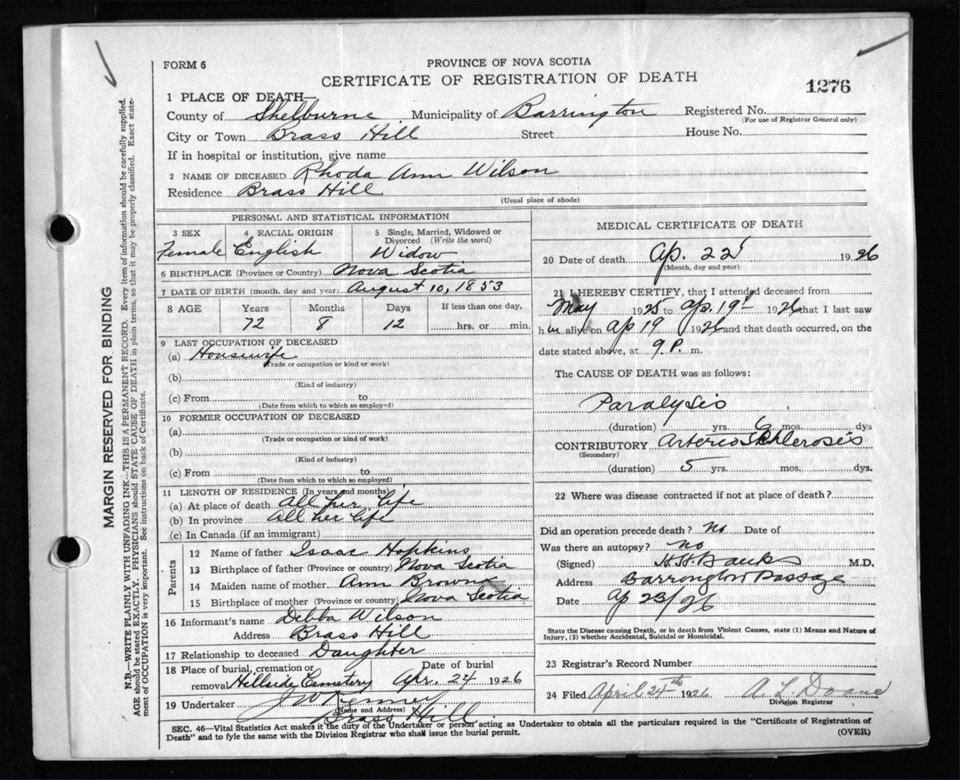 FORM 6
PROVINCE OF NOVA SCOTIA
CERTIFICATE OF REGISTRATION OF DEATH
1276
1 PLACE OF DEATH—
County of Shelburne Municipality of Barrington Registered No.
(For use of Registrar General only)
City or Town Brass Hill Street House No.
If in hospital or institution, give name
2 NAME OF DECEASED Rhoda Ann Wilson
Residence Brass Hill
(Usual place of abode)
PERSONAL AND STATISTICAL INFORMATION
3 SEX 4 RACIAL ORIGIN 5 Single, Married, Widowed or
Divorced (Write the word)
Female English Widow
6 BIRTHPLACE (Province or Country) Nova Scotia
7 DATE OF BIRTH (month, day and year) August 10, 1853
8 AGE Years Months Days If less than one day,
72 8 12 hrs. or min.
9 LAST OCCUPATION OF DECEASED
(a) Housewife
(Trade or occupation or kind or work)
(b)
(Kind of industry)
(c) From to
(Date from which to which so employed)
10 FORMER OCCUPATION OF DECEASED
(a)
(Trade or occupation or kind of work)
(b)
(Kind of industry)
(c) From to
(Date from which to which so employed)
11 LENGTH OF RESIDENCE (In years and months)
(a) At place of death All her life
(b) In province All her life
(c) In Canada (if an immigrant)
Parents
12 Name of father Isaac Hopkins
13 Birthplace of father (Province or country) Nova Scotia
14 Maiden name of mother Ann Browne
15 Birthplace of mother (Province or country) Nova Scotia
16 Informant's name Debba Wilson
Address Brass Hill
17 Relationship to deceased Daughter
18 Place of burial, cremation or Date of burial
removal Hillside Cemetery Apr. 24 1926
19 Undertaker
(Name and Address)
Brass Hill
MEDICAL CERTIFICATE OF DEATH
20 Date of death Ap. 22 1926
(Month, day and year)
21 I HEREBY CERTIFY, that I attended deceased from
May 1925 to Ap. 19 1926 that I last saw
h er alive on Ap 19 1926 and that death occurred, on the
date stated above, at 9 P. m.
The CAUSE OF DEATH was as follows:
Paralysis
(duration) yrs. 6 mos. dys
CONTRIBUTORY Arterio Sclerosis
(Secondary)
(duration) 5 yrs. mos. dys.
22 Where was disease contracted if not at place of death?
Did an operation precede death? No Date of
Was there an autopsy? no
(Signed) H. H. Banks M.D.
Address Barrington Passage
Date Ap 23/26
State the Disease causing Death, or in death from Violent Causes, state (1) Means and Nature of
Injury, (2) whether Accidental, Suicidal or Homicidal.
23 Registrar's Record Number
24 Filed April 24th 1926 A L Doane
Division Registrar
SEC. 46—Vital Statistics Act makes it the duty of the Undertaker or person acting as Undertaker to obtain all the particulars required in the "Certificate of Registration of
Death" and to fyle the same with the Division Registrar who shall issue the burial permit.
(OVER)
MARGIN RESERVED FOR BINDING
N.B.—WRITE PLAINLY WITH UNFADING INK—THIS IS A PERMANENT RECORD. Every item of information should be carefully supplied.
AGE should be stated EXACTLY. PHYSICIANS should STATE CAUSE OF DEATH in plain terms, so that it may be properly classified. Exact state-
ment of OCCUPATION is very important. See instructions on back of Certificate.